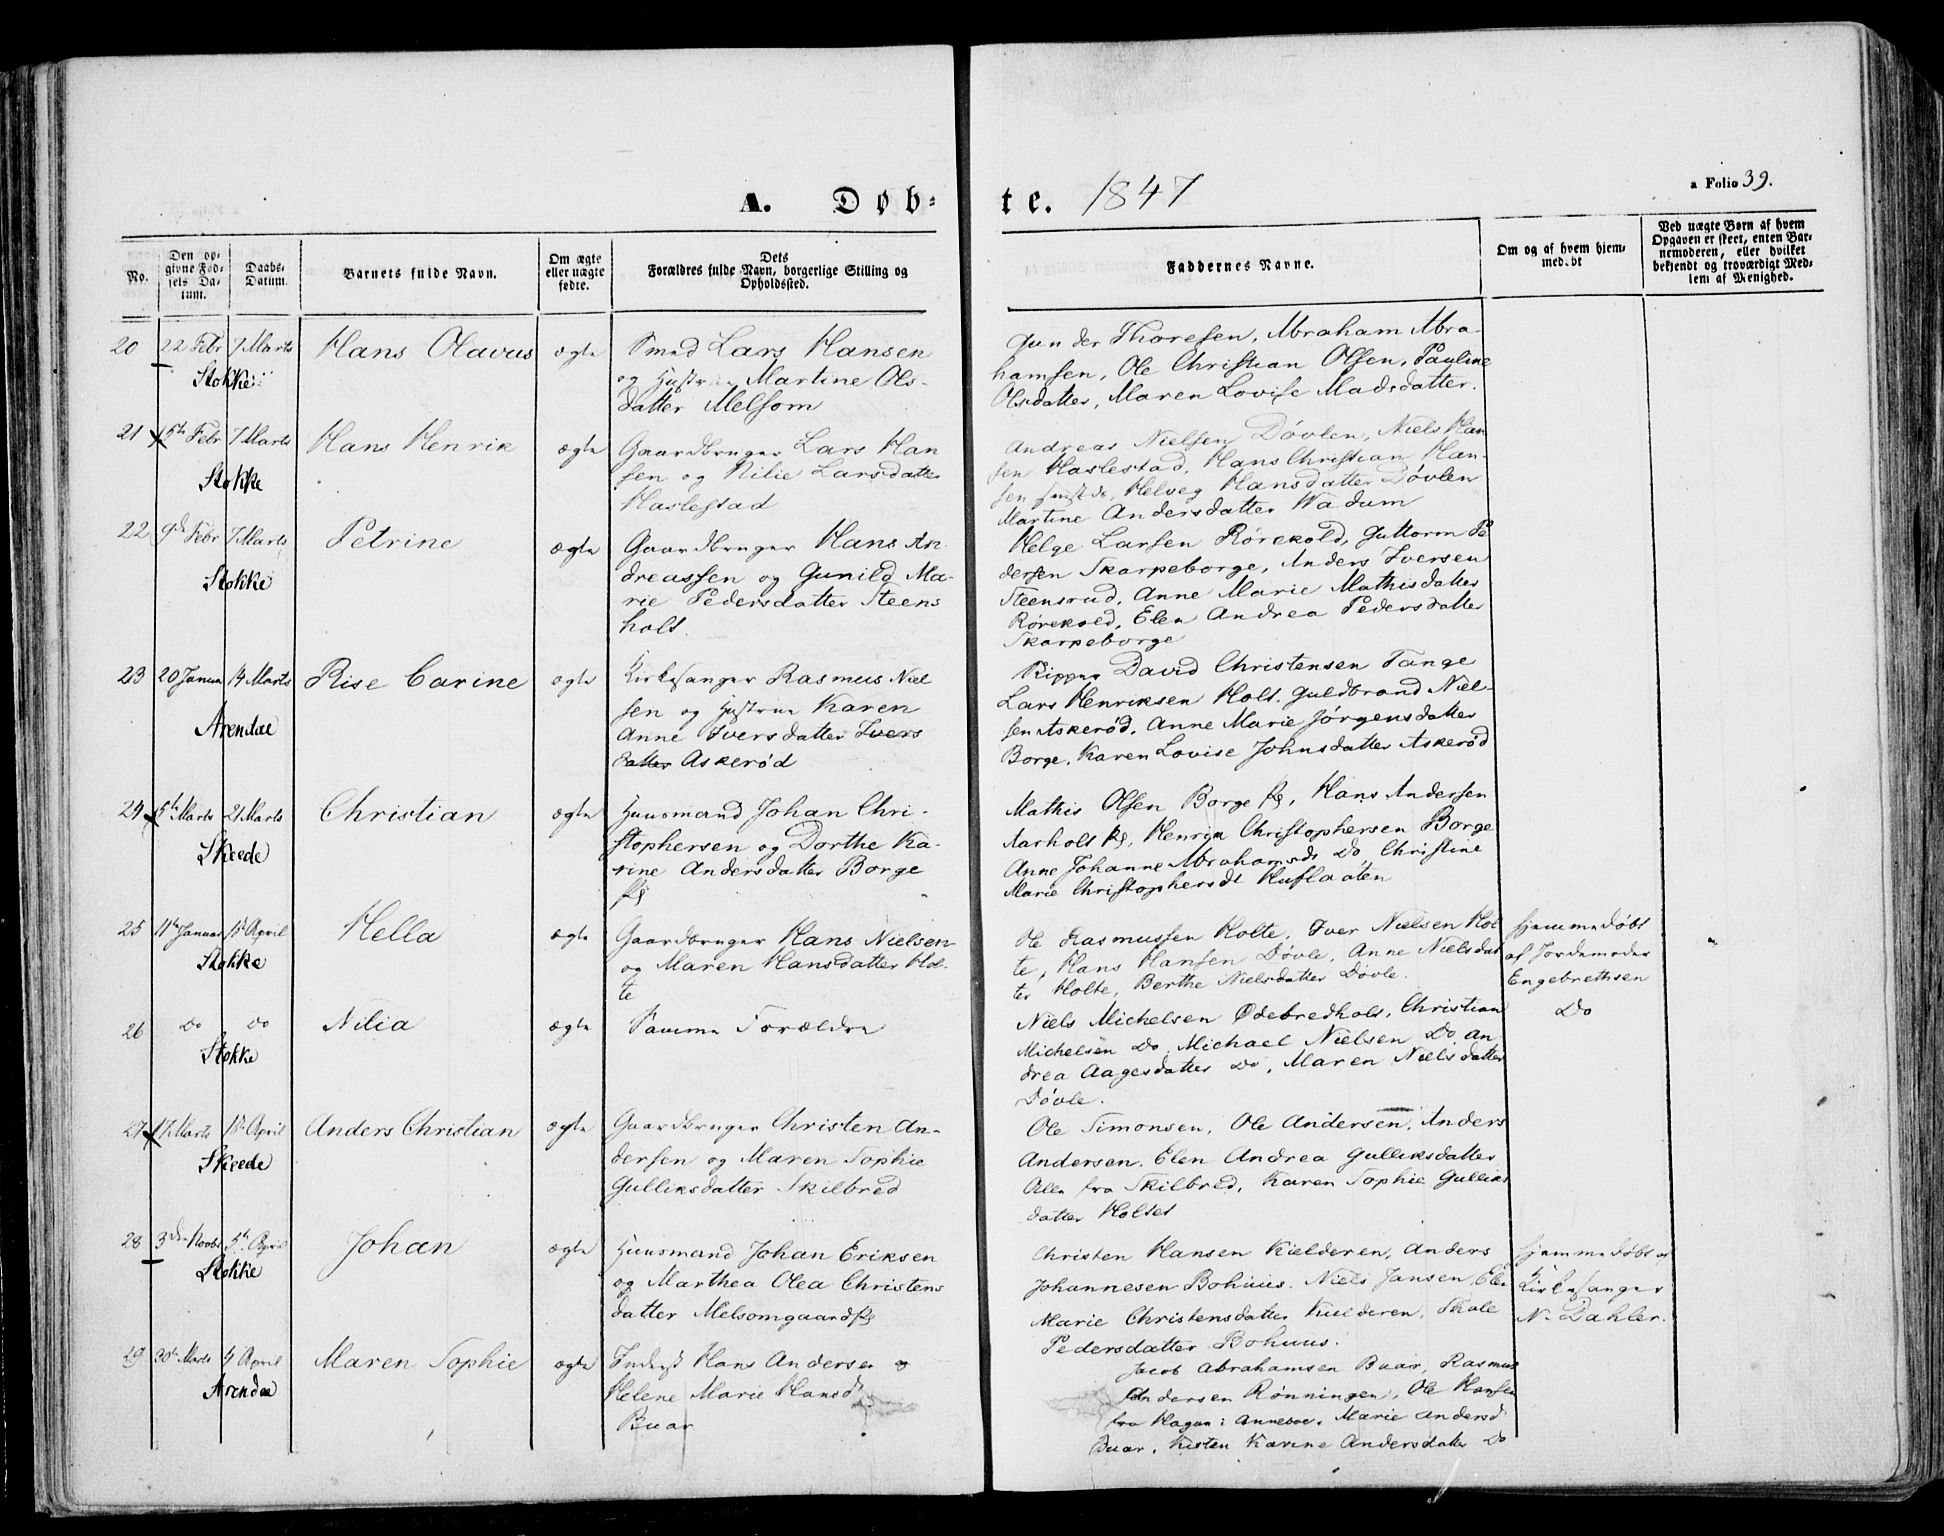 A. Døb-
te. 1847
a Folio 39.
No.
Den op-
givne Fød-
sels Da-
tum.
Daabs-
Datum.
Barnets fulde Navn.
Om ægte
eller uægte
fødte.
Dets
Forældres fulde Navn, borgerlige Stilling og
Opholdssted.
Faddernes Navne.
Om og af hvem hjem-
medøbt
Ved uægte Børn af hvem
Opgaven er skeet, enten Bar-
nemoderen, eller hvilket
bekjendt og troværdigt Med-
lem af Menighed.
20 22 Febr 7 Marts Hans Olavus ægte Smed Lars Hansen
Stokke og Hustrue Martine Ols-
datter Melsom
Gunder Thoresen, Abraham Abra-
hamsen, Ole Christian Olsen, Pauline
Olsdatter, Maren Lovise Madsdatter.
21 5te Febr 7 Marts Hans Henrik ægte Gaardbruger Lars Han
Stokke sen og Nilie Larsdatter
Haslestad
Andreas Nielsen Døvlen, Niels Han
sen Haslestad, Hans Christian Han-
sen, Helveg Hansdatter Døvlen
Martine Andersdatter Wadum
22 9de Febr 7 Marts Petrine ægte Gaardbruger Hans An
Stokke dreassen og Gunild Ma-
rie Pedersdatter Steens
holt.
Helge Larsen Rørekold, Guttorm Pe
dersen Skarpeborge, Anders Iversen
Steensrud, Anne Marie Mathisdatter
Rørekold, Elen Andrea Pedersdatter
Skarpeborge
23 20 Januar 14 Marts Rise Carine ægte Kirkesanger Rasmus Niel
Arendae sen og Hustrue Karen
Anne Iversdatter Ivers
datter Askerød
David Christensen Tange
Lars Henriksen Holt. Guldbrand Niel-
sen Askerød, Anne Marie Jörgensdatter
Borge, Karen Lovise Johnsdatter Askerød
24 5te Marts 21 Marts Christian ægte Huusmand Johan Chri-
Skeede stophersen og Dorthe Ka-
rine Andersdatter Borge
Mathis Olsen Borge, Hans Andersen
Aarholt, Henrik Christophersen Borge
Anne Johanne Abrahamsdt Do, Christine
Marie Christophersdt Huflaaten
25 11te Januar 1st April Hella ægte Gaardbruger Hans Nielsen
Stokke og Maren Hansdatter Hol-
te
Ole Rasmussen Holte, Iver Nielsen Hol
te, Hans Hansen Døvle, Anne Nielsdat
ter Holte, Berthe Nielsdatter Døvle.
Hjemmedøbt
af Jordemoder
Engebrethsen
26 Do Do Nilia ægte Samme Forældre
Stokke
Niels Michelsen Ødebredholt, Christian
Michelsen Do, Michael Nielsen Do An
drea Aagesdatter Do, Maren Nielsdatter
Døvle.
Do
27 17 Marts 1st April Anders Christian ægte Gaardbruger Christen An-
Skeede dersen og Maren Sophie
Gulliksdatter Skilbred
Ole Simonsen, Ole Andersen, Anders
Andersen, Elen Andrea Gulliksdatter
Alle fra Skilbred, Karen Sophie Gulliks
datter Holtet
28 3die Novbr 5te April Johan ægte Huusmand Johan Eriksen
Stokke og Marthea Olea Christens
datter Melsomgaard
Christen Hansen Kielderen, Anders
Johannesen Bohuus. Niels Jansen, Elen
Marie Christensdatter Kielderen, Thale
Pedersdatter Bohuus.
Hjemmedøbt af
Kirkesanger
N. Dahler.
29 30te Marts 4 April Maren Sophie ægte Inderst Hans Andersen og
Arendae Helene Marie Hansd
Buar
Jacob Abrahamsen Buar, Rasmus
Andersen Rønningen, Ole Hansen
fra Hagan i Anneboe, Marie Andersd
Buar, Kisten Karine Andersdatter Do